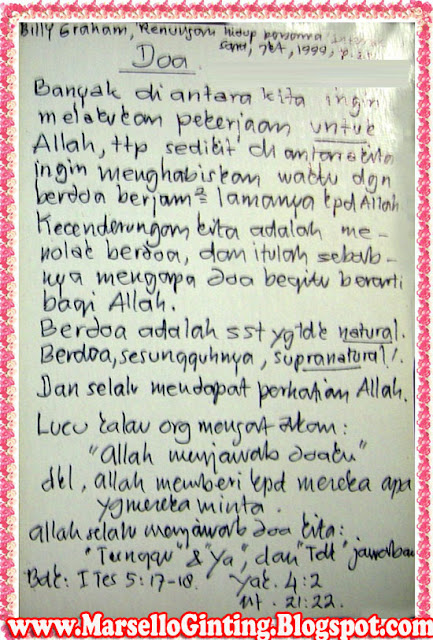 Billy Graham, Renungan hidup bersama
1999, p.
Doa
Banyak di antara kita ingin
melakukan pekerjaan untuk
Allah, ttp sedikit di antara kita
ingin menghabiskan waktu dgn
berdoa berjam² lamanya kpd Allah.
Kecenderungan kita adalah me-
nolak berdoa, dan itulah sebab-
nya mengapa doa begitu berarti
bagi Allah.
Berdoa adalah sst yg tdk natural.
Berdoa, sesungguhnya, supranatural!.
Dan selalu mendapat perhatian Allah.
Lucu kalau org mengatakan:
"Allah menjawab doaku"
dkl, Allah memberi kpd mereka apa
yg mereka minta.
Allah selalu menjawab doa kita:
"Tunggu" & "Ya", dan "Tdk" jawaban
Bdk: I Tes 5:17-18. Yak. 4:2
Mt. 21:22.
www.MarselloGinting.Blogspot.com